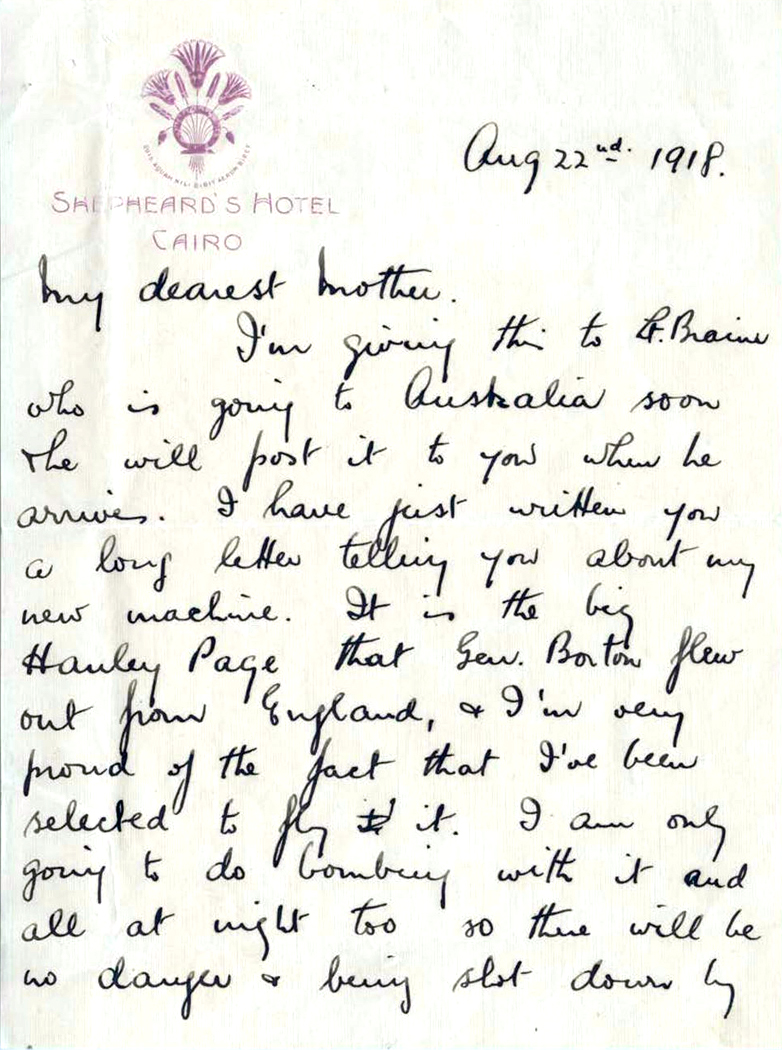 QUIS AQUAM NILI BIBIT AERUM BIBET
Aug 22nd. 1918.
SHEPHEARD'S HOTEL
CAIRO
My dearest Mother.
I'm giving this to Lt. Braine
who is going to Australia soon
& he will post it to you when he
arrives. I have just written you
a long letter telling you about my
new machine. It is the big
Hanley Page that Gen. Borton flew
out from England, & I'm very
proud of the fact that I've been
selected to fly it. I am only
going to do bombing with it and
all at night too so there will be
no danger & being shot down by